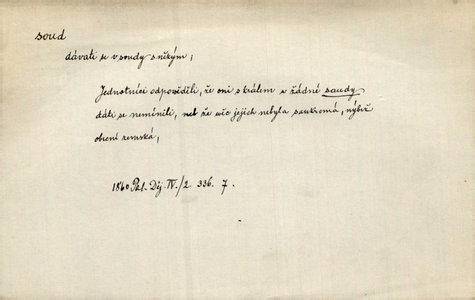 soud
dávati se v soudy s někým;
Jednotníci odpověděli, že oni s králem v žádné saudy
dáti se nemínili, neb že věc jejich nebyla saukromá, nýbrž
obecní zemská,
1860 Pal. Děj. IV./2 336. 7.